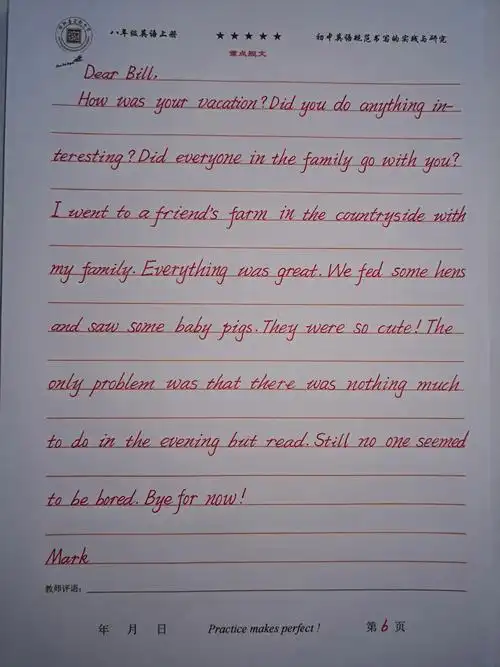 八年级英语上册 ★★★★★ 初中英语规范书写的实践与研究
重点短文
Dear Bill,
How was your vacation? Did you do anything in-
teresting? Did everyone in the family go with you?
I went to a friend's farm in the countryside with
my family. Everything was great. We fed some hens
and saw some baby pigs. They were so cute! The
only problem was that there was nothing much
to do in the evening but read. Still no one seemed
to be bored. Bye for now!
Mark
教师评语:
年 月 日 Practice makes perfect! 第 6 页